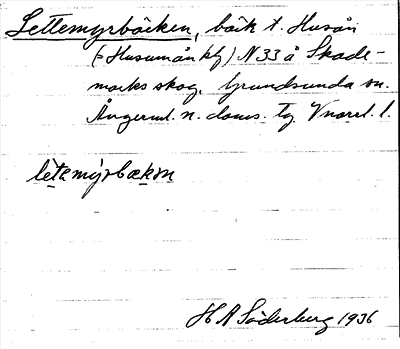 Lettemyrbäcken, bäck t. Husån
(= Husumån kfg) N 33 å Skade-
marks skog, Grundsunda sn.
Ångerml. n. doms. Tg. Vnorrl. l.
letemýrbækɐn
H A Söderberg 1936